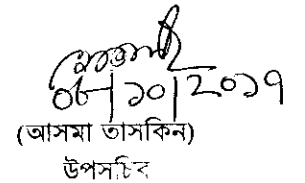 ০৮/১০/২০১৭
(আসমা তাসকিন)
উপসচিব